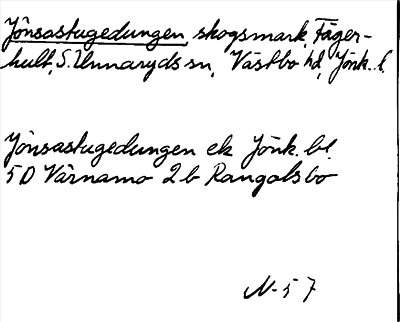 Jönsastugedungen, skogsmark, Fäger-
hult, S. Unnaryds sn, Västbo hd, Jönk. l.
Jönsastugedungen ek Jönk. bl.
5D Värnamo 2b Rangalsbo
N-57